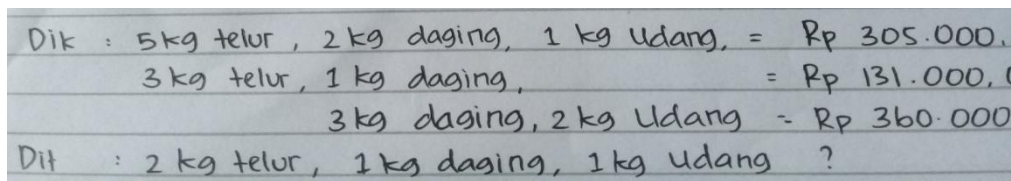 Dik : 5kg telur, 2 kg daging, 1 kg Udang, = Rp 305.000,
3 kg telur, 1 kg daging, = Rp 131.000,
3 kg daging, 2 kg Udang = Rp 360.000
Dit : 2 kg telur, 1 kg daging, 1 kg Udang ?